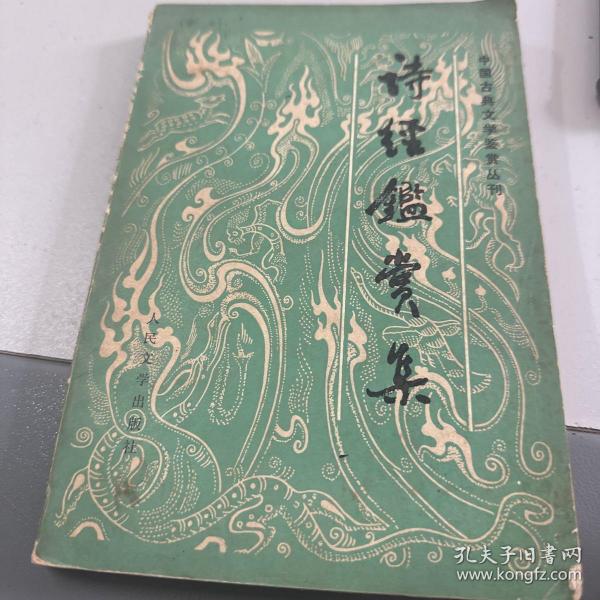 中国古典文学鉴赏丛刊
诗经鑑赏集
人民文学出版社
孔夫子旧书网
www.kongfz.com